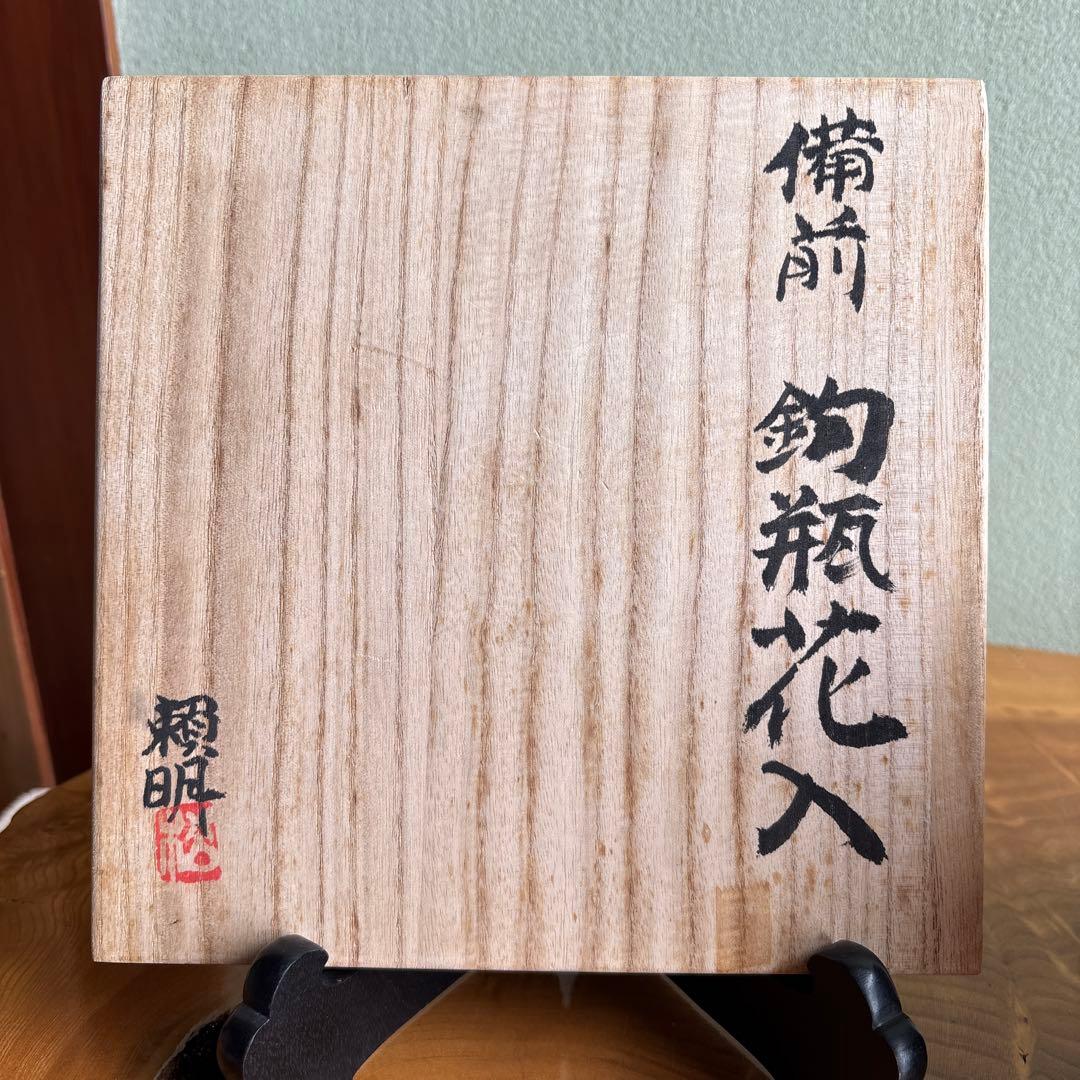 備前 釣瓶花入
頼明